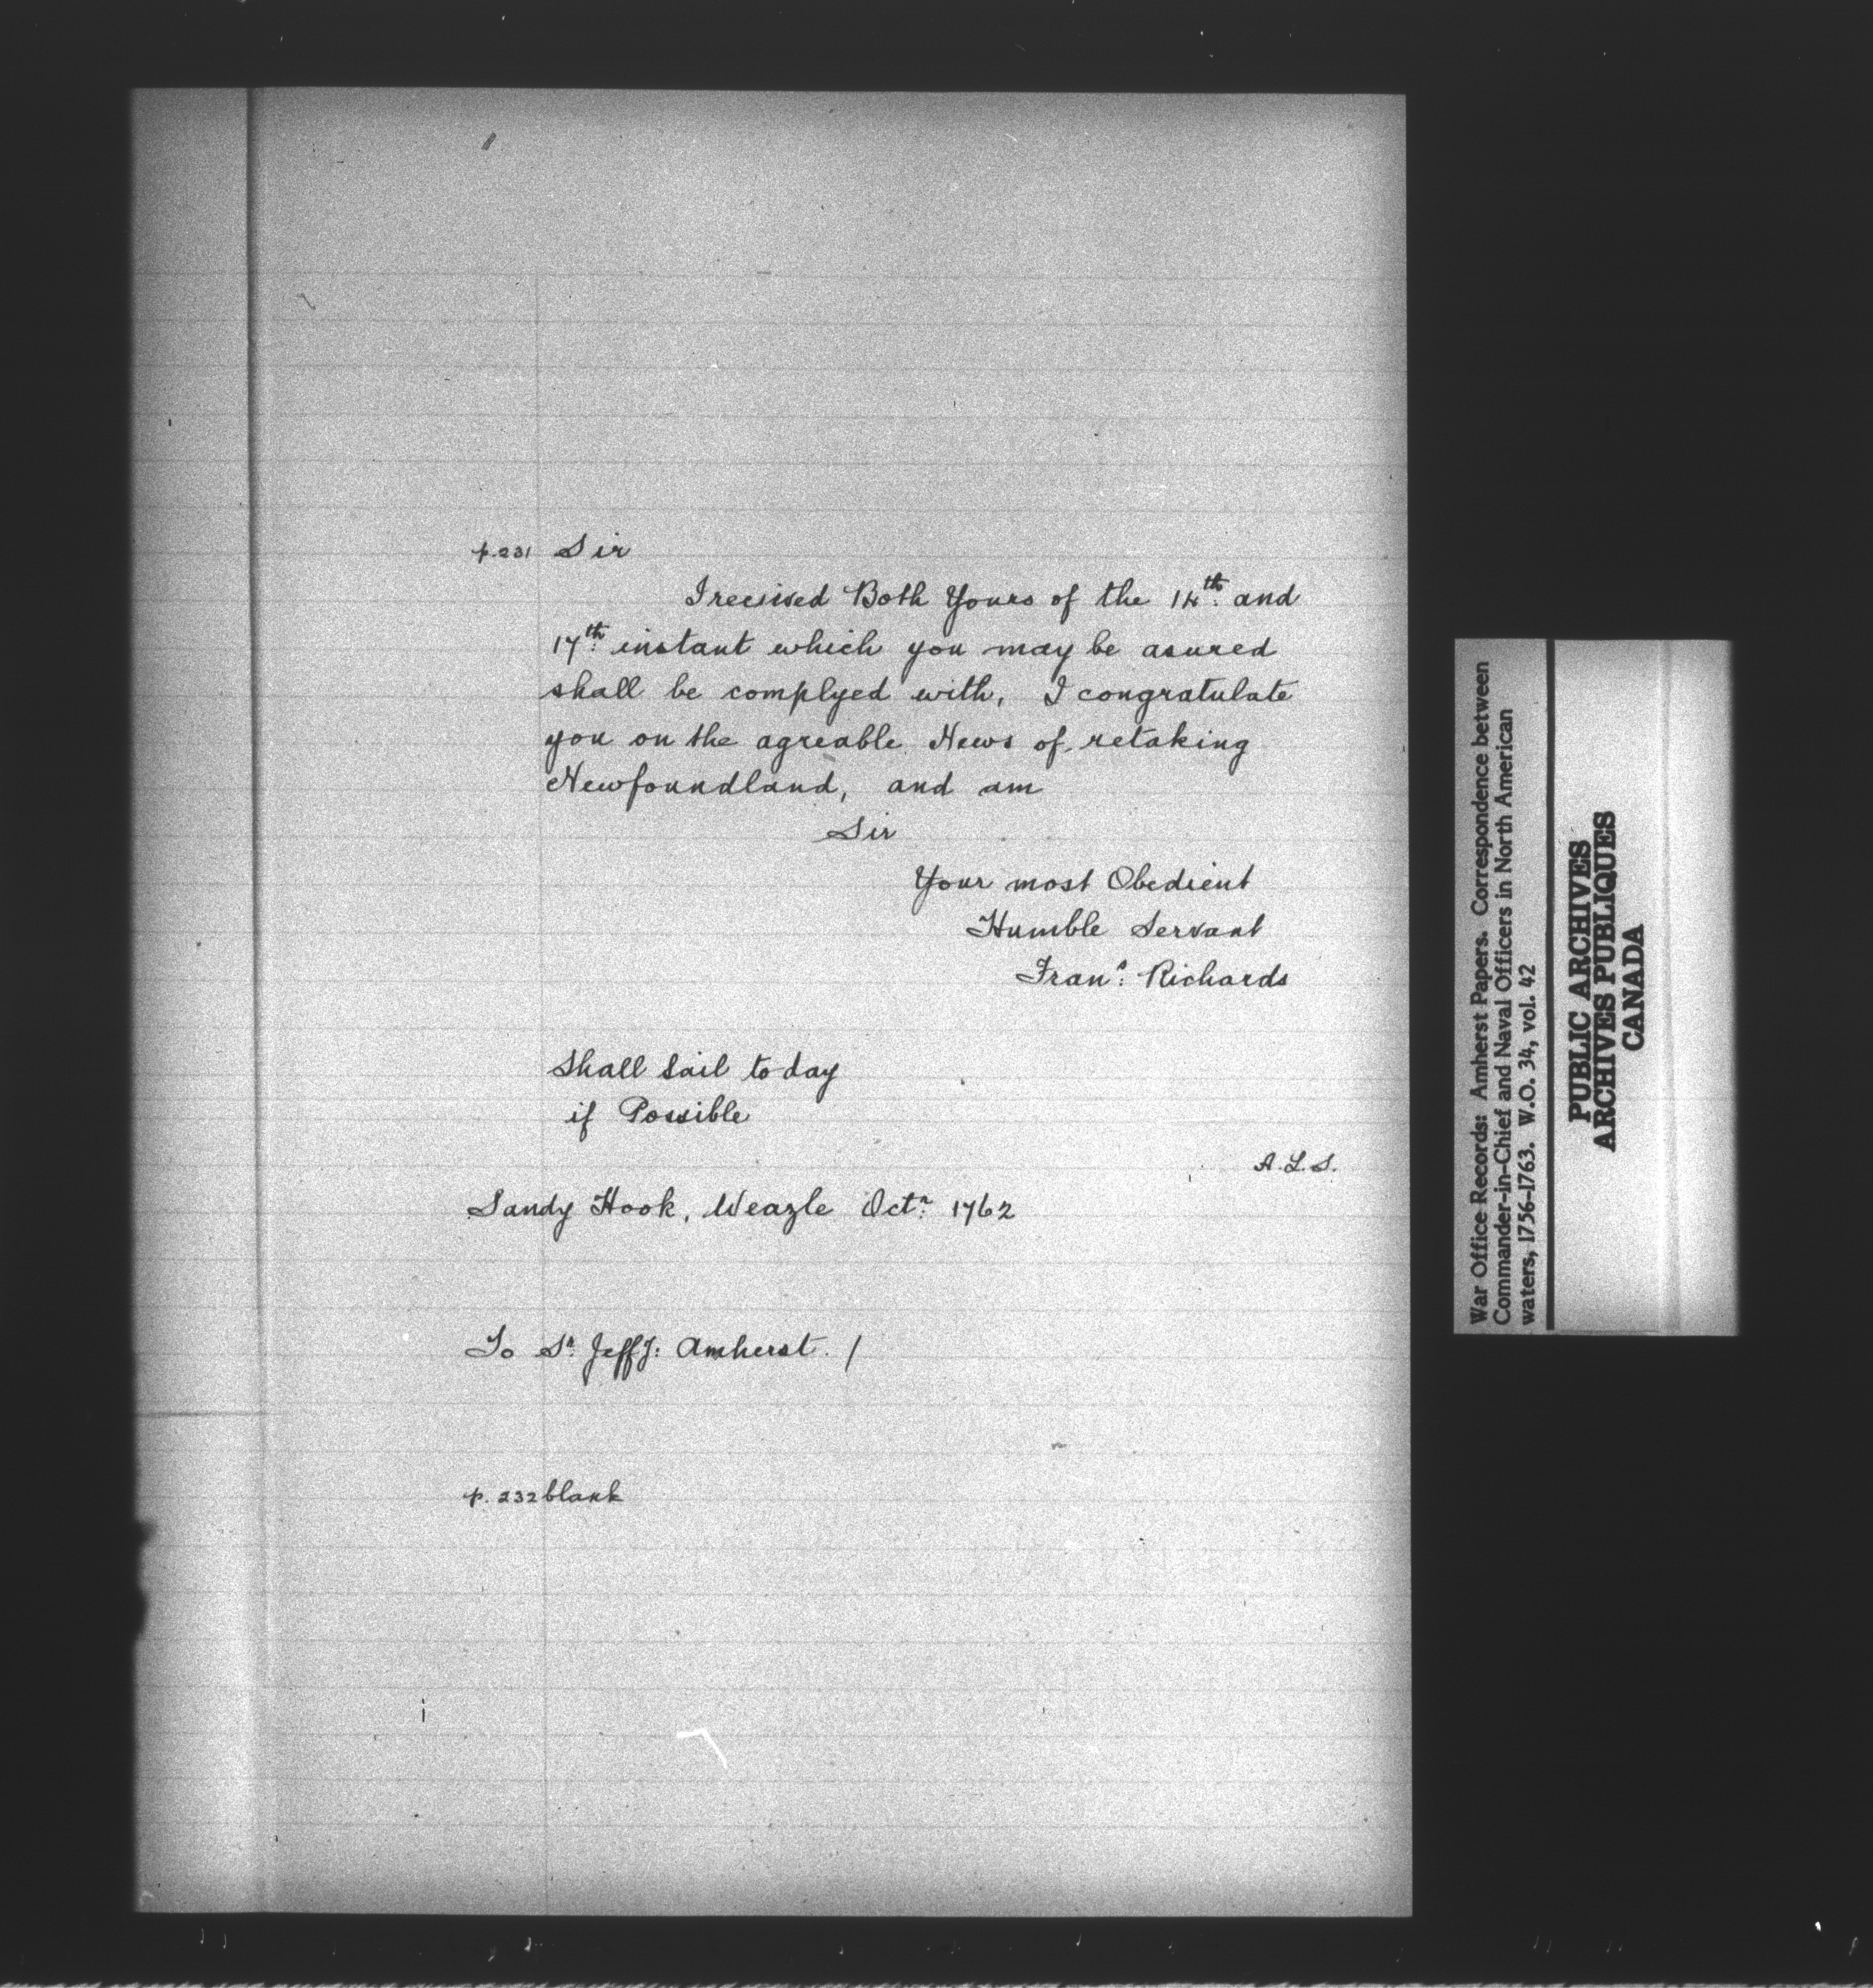 p. 231 Sir
I recieved Both Yours of the 14th. and
17th. instant which you may be asured
shall be complyed with, I congratulate
you on the agreable News of retaking
Newfoundland, and am
Sir
Your most Obedient
Humble Servant
Frans. Richards
Shall Sail to day
if Possible
A.L.S.
Sandy Hook, Weazle Octr. 1762
To Sr. Jeffy: Amherst. /
p. 232 blank
War Office Records: Amherst Papers. Correspondence between
Commander-in-Chief and Naval Officers in North American
waters, 1756-1763. W.O. 34, vol. 42
PUBLIC ARCHIVES
ARCHIVES PUBLIQUES
CANADA